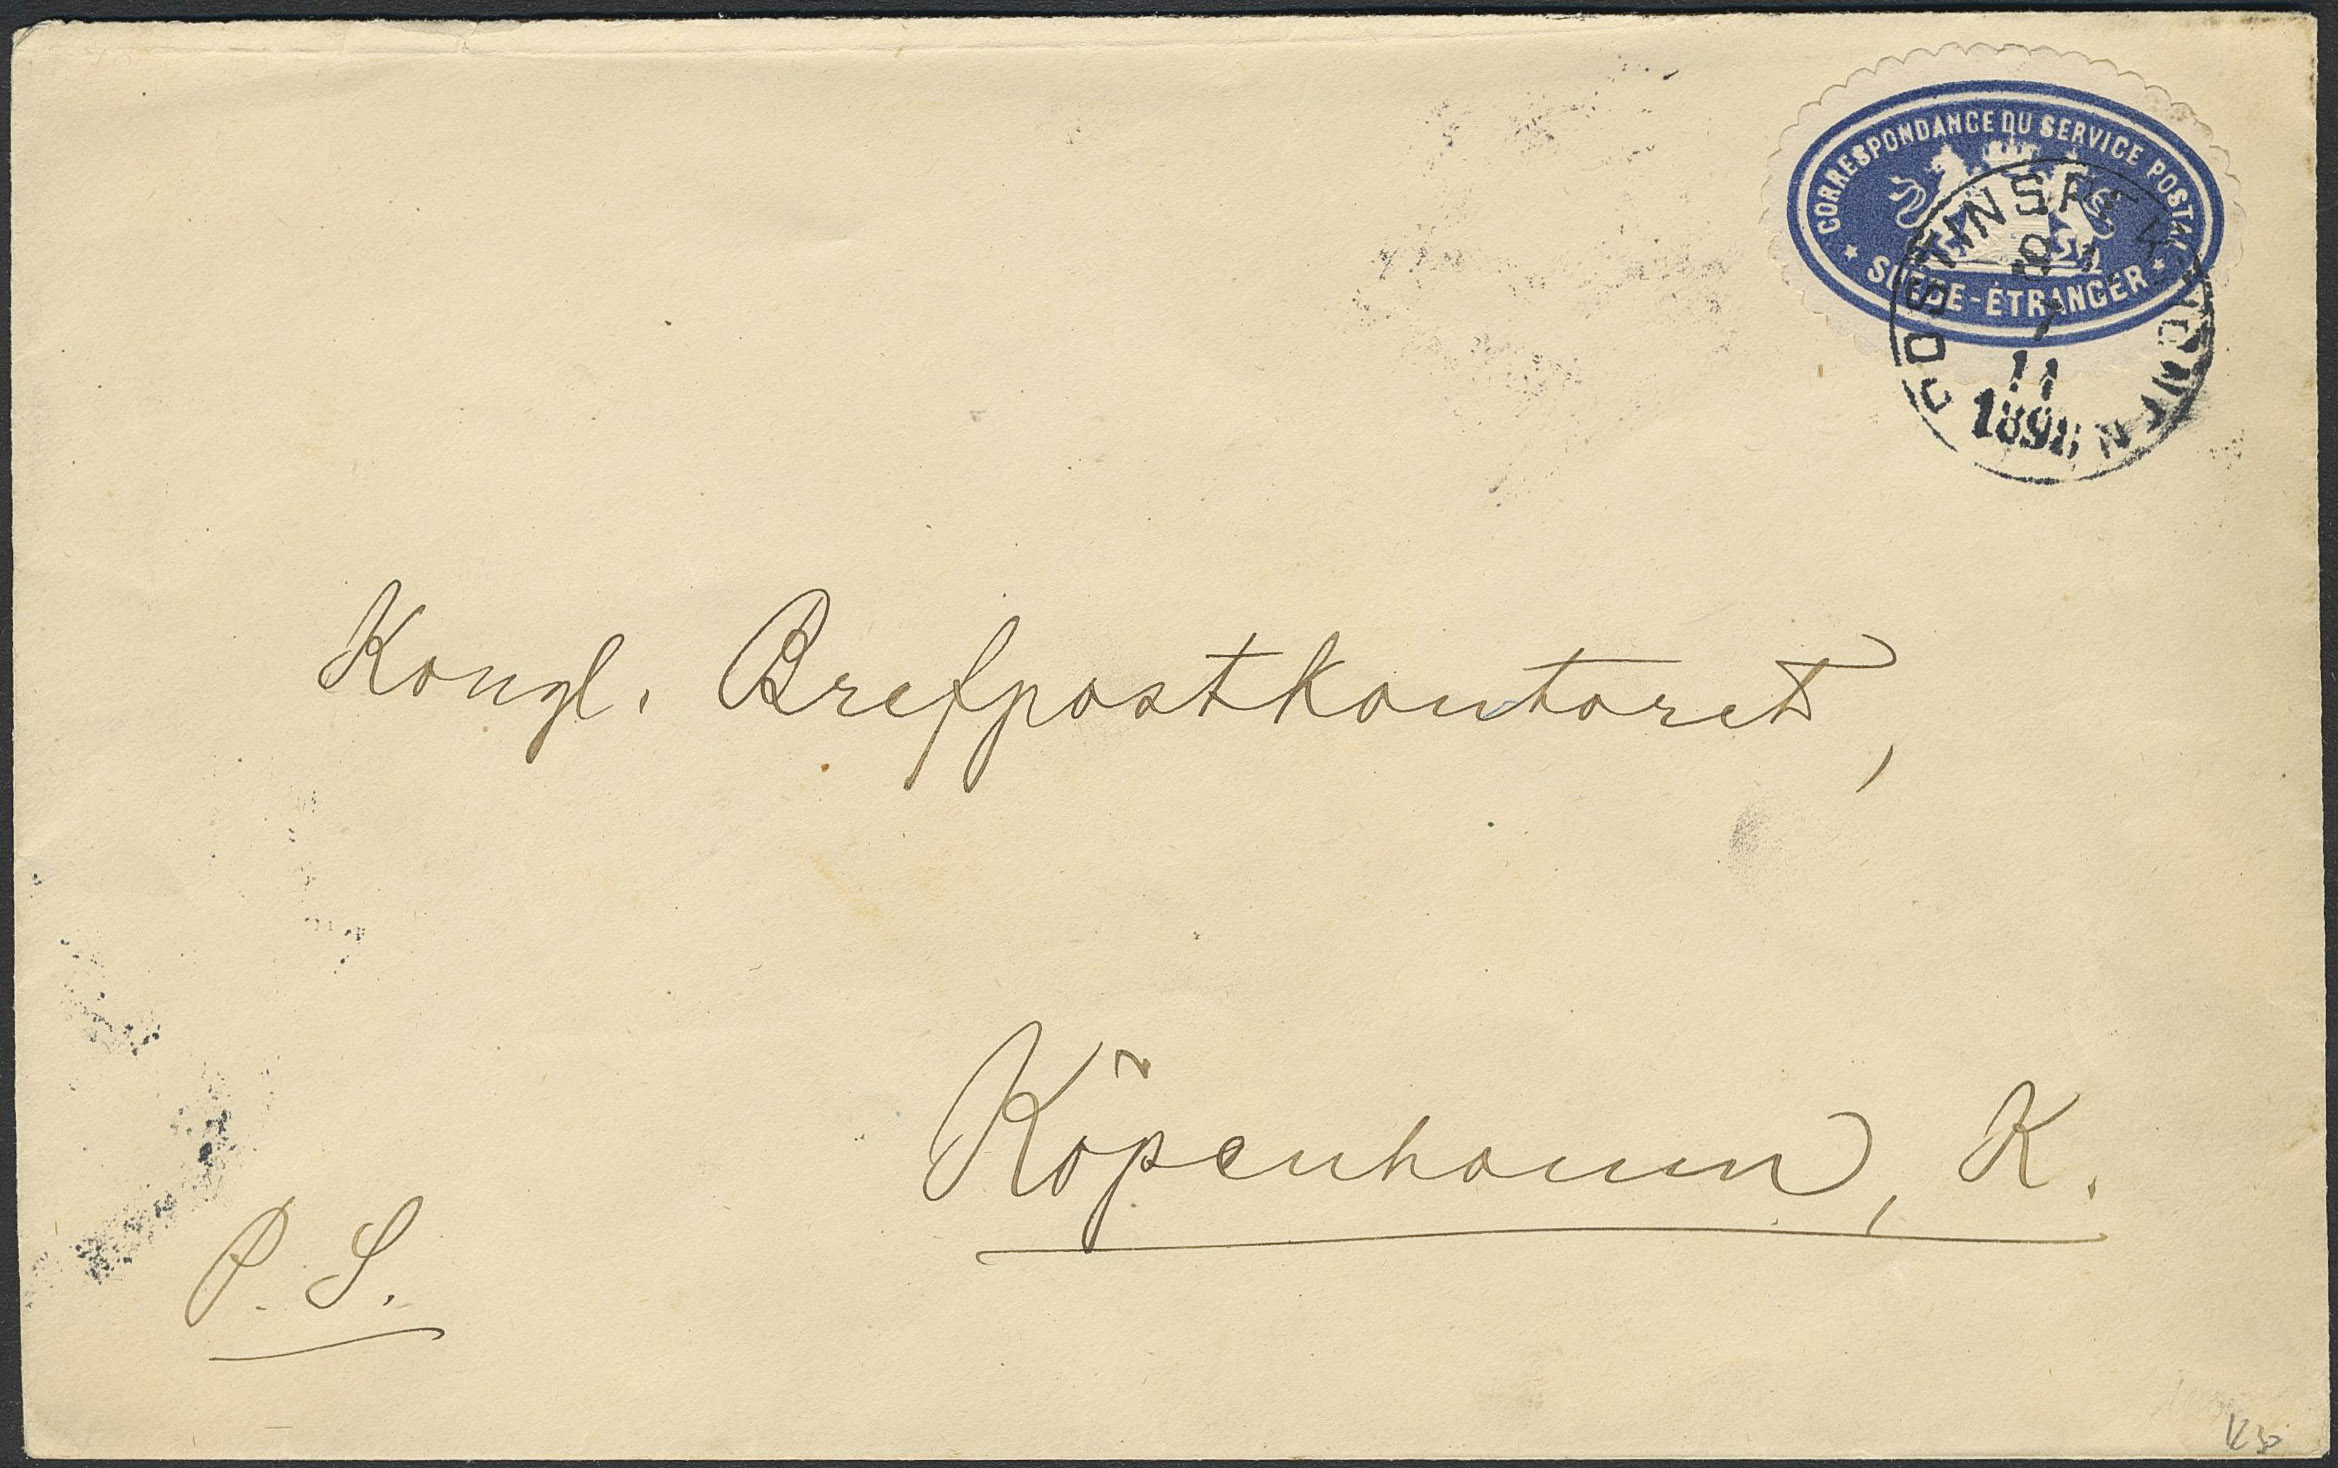 CORRESPONDANCE DU SERVICE POSTAL
SUÈDE-ÉTRANGER
11
1898
Kongl. Brefpostkontoret,
Köpenhamn, K.
P. S.